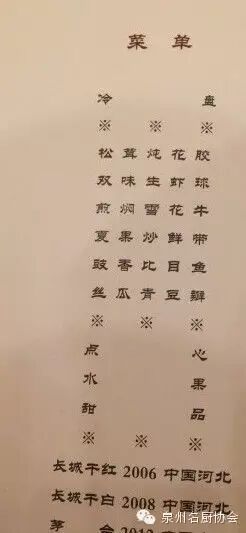 菜单
冷盘
※ ※ ※
松茸炖花胶
双味生虾球
煎焖雪花牛
夏果炒鲜带
豉香比目鱼
丝瓜青豆瓣
※ ※ ※
点心
水果
甜品
※ ※ ※
长城干红 2006 中国河北
长城干白 2008 中国河北
茅台 2012
泉州名厨协会